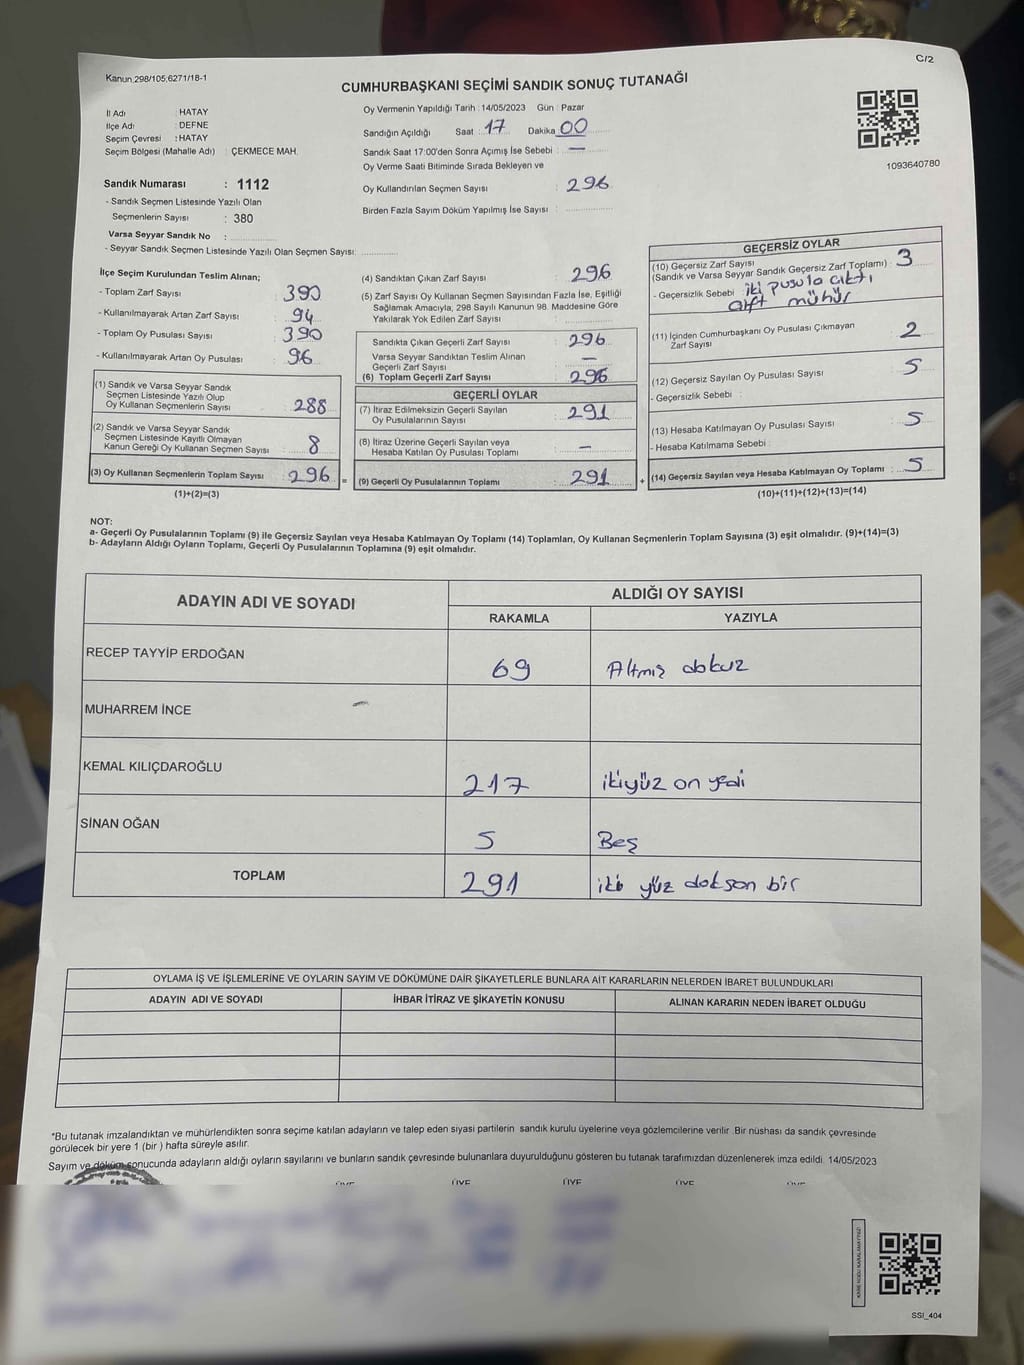 C/2
Kanun 298/105;6271/18-1
CUMHURBAŞKANI SEÇİMİ SANDIK SONUÇ TUTANAĞI
İl Adı : HATAY
İlçe Adı : DEFNE
Seçim Çevresi : HATAY
Seçim Bölgesi (Mahalle Adı) : ÇEKMECE MAH.
Sandık Numarası : 1112
- Sandık Seçmen Listesinde Yazılı Olan
Seçmenlerin Sayısı : 380
Varsa Seyyar Sandık No :
- Seyyar Sandık Seçmen Listesinde Yazılı Olan Seçmen Sayısı:
Oy Vermenin Yapıldığı Tarih : 14/05/2023 Gün : Pazar
Sandığın Açıldığı Saat : 17 Dakika 00
Sandık Saat 17:00'den Sonra Açımış İse Sebebi : —
Oy Verme Saati Bitiminde Sırada Bekleyen ve
Oy Kullandırılan Seçmen Sayısı : 296
Birden Fazla Sayım Döküm Yapılmış İse Sayısı :
1093640780
İlçe Seçim Kurulundan Teslim Alınan;
- Toplam Zarf Sayısı : 390
- Kullanılmayarak Artan Zarf Sayısı : 94
- Toplam Oy Pusulası Sayısı : 390
- Kullanılmayarak Artan Oy Pusulası : 96
(1) Sandık ve Varsa Seyyar Sandık
Seçmen Listesinde Yazılı Olup
Oy Kullanan Seçmenlerin Sayısı : 288
(2) Sandık ve Varsa Seyyar Sandık
Seçmen Listesinde Kayıtlı Olmayan
Kanun Gereği Oy Kullanan Seçmen Sayısı : 8
(3) Oy Kullanan Seçmenlerin Toplam Sayısı : 296
(1)+(2)=(3)
=
(4) Sandıktan Çıkan Zarf Sayısı : 296
(5) Zarf Sayısı Oy Kullanan Seçmen Sayısından Fazla İse, Eşitliği
Sağlamak Amacıyla, 298 Sayılı Kanunun 98. Maddesine Göre
Yakılarak Yok Edilen Zarf Sayısı :
Sandıkta Çıkan Geçerli Zarf Sayısı : 296
Varsa Seyyar Sandıktan Teslim Alınan
Geçerli Zarf Sayısı : —
(6) Toplam Geçerli Zarf Sayısı : 296
GEÇERLİ OYLAR
(7) İtiraz Edilmeksizin Geçerli Sayılan
Oy Pusulalarının Sayısı : 291
(8) İtiraz Üzerine Geçerli Sayılan veya
Hesaba Katılan Oy Pusulası Toplamı : —
(9) Geçerli Oy Pusulalarının Toplamı : 291
+
GEÇERSİZ OYLAR
(10) Geçersiz Zarf Sayısı
(Sandık ve Varsa Seyyar Sandık Geçersiz Zarf Toplamı) : 3
- Geçersizlik Sebebi : iki pusula çıktı
çift mühür
(11) İçinden Cumhurbaşkanı Oy Pusulası Çıkmayan
Zarf Sayısı : 2
(12) Geçersiz Sayılan Oy Pusulası Sayısı : 5
- Geçersizlik Sebebi :
(13) Hesaba Katılmayan Oy Pusulası Sayısı : 5
- Hesaba Katılmama Sebebi :
(14) Geçersiz Sayılan veya Hesaba Katılmayan Oy Toplamı : 5
(10)+(11)+(12)+(13)=(14)
NOT:
a- Geçerli Oy Pusulalarının Toplamı (9) ile Geçersiz Sayılan veya Hesaba Katılmayan Oy Toplamı (14) Toplamları, Oy Kullanan Seçmenlerin Toplam Sayısına (3) eşit olmalıdır. (9)+(14)=(3)
b- Adayların Aldığı Oyların Toplamı, Geçerli Oy Pusulalarının Toplamına (9) eşit olmalıdır.
ADAYIN ADI VE SOYADI
ALDIĞI OY SAYISI
RAKAMLA YAZIYLA
RECEP TAYYİP ERDOĞAN 69 Altmış dokuz
MUHARREM İNCE
KEMAL KILIÇDAROĞLU 217 ikiyüz on yedi
SİNAN OĞAN 5 Beş
TOPLAM 291 iki yüz doksan bir
OYLAMA İŞ VE İŞLEMLERİNE VE OYLARIN SAYIM VE DÖKÜMÜNE DAİR ŞİKAYETLERLE BUNLARA AİT KARARLARIN NELERDEN İBARET BULUNDUKLARI
ADAYIN ADI VE SOYADI İHBAR İTİRAZ VE ŞİKAYETİN KONUSU ALINAN KARARIN NEDEN İBARET OLDUĞU
*Bu tutanak imzalandıktan ve mühürlendikten sonra seçime katılan adayların ve talep eden siyasi partilerin sandık kurulu üyelerine veya gözlemcilerine verilir. Bir nüshası da sandık çevresinde
görülecek bir yere 1 (bir ) hafta süreyle asılır.
Sayım ve döküm sonucunda adayların aldığı oyların sayılarını ve bunların sandık çevresinde bulunanlara duyurulduğunu gösteren bu tutanak tarafımızdan düzenlenerek imza edildi. 14/05/2023
ÜYE ÜYE ÜYE ÜYE ÜYE
SSI_404